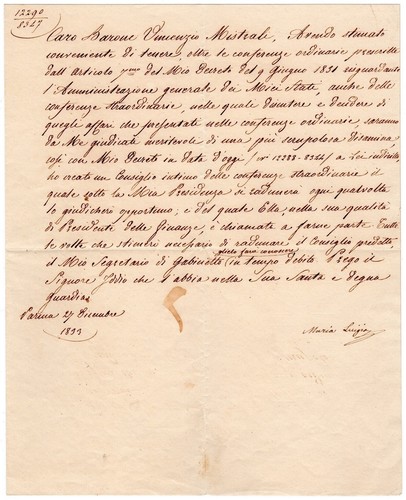 12290
8347
Caro Barone Vincenzo Mistrali, Avendo stimato
conveniente di tenere, oltre le conferenze ordinarie prescritte
dall'articolo del Mio Decreto del 9 Giugno 1831 risguardante
l'Amministrazione generale dei Miei Stati, anche delle
conferenze straordinarie, nelle quali discutere e decidere di
quegli affari che presentati nelle conferenze ordinarie, saranno
da Me giudicati meritevoli di una più scrupolosa disamina,
così con Mio Decreto in data d'oggi (n° 12288-8345) a Lei indirizzato
ho creato un Consiglio intimo delle conferenze straordinarie il
quale sotto la Mia Presidenza si radunerà ogni qualvolta
lo giudicherò opportuno; e del quale Ella, nella sua qualità
di Presidente delle Finanze, è chiamata a farne parte. Tutte
le volte che stimerò necessario di radunare il Consiglio predetto,
il Mio Segretario di Gabinetto glielo farà conoscere in tempo debito. Prego il
Signore Iddio che l'abbia nella Sua Santa e degna
guardia.
Parma 27 Dicembre
1833
Maria Luigia